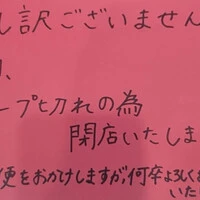 し訳ございません
、
ープ切れの為
閉店いたしま
便をおかけしますが、何卒よろしく
いた